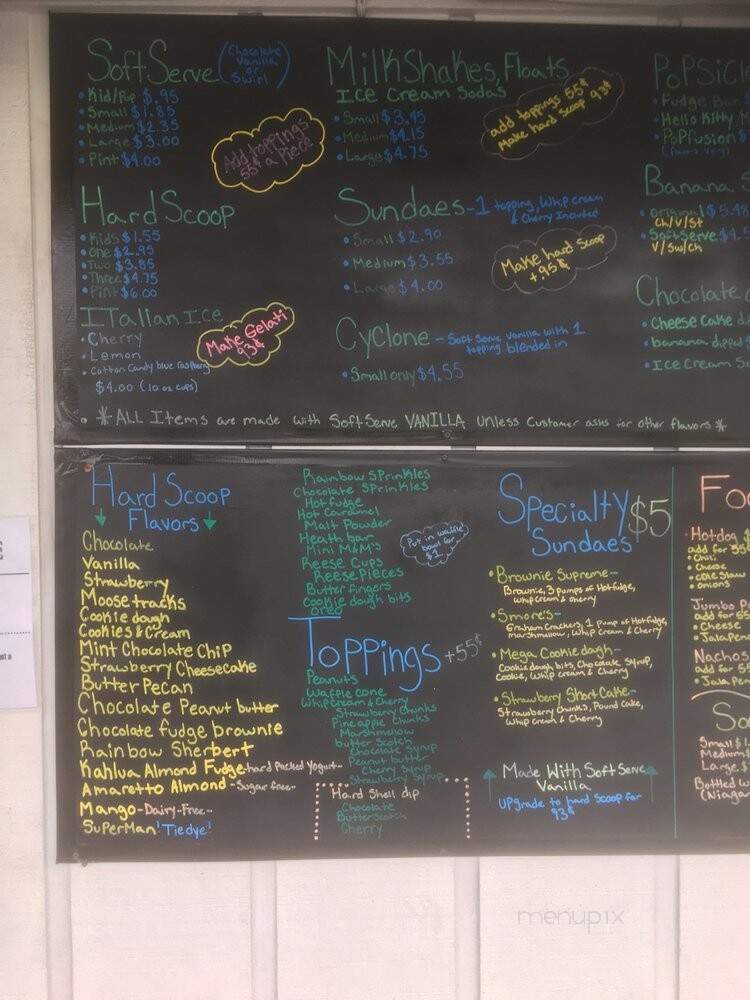 Soft Serve
(Chocolate
Vanilla
or
Swirl)
• Kid/Pup $.95
• Small $1.85
• Medium $2.35
• Large $3.00
• Pint $4.00
Add toppings
55¢ a Piece
Hard Scoop
• Kids $1.55
• One $2.95
• Two $3.85
• Three $4.75
• Pint $6.00
ITalian Ice
• Cherry
• Lemon
• Cotton Candy blue raspberry
$4.00 (10 oz cups)
Make Gelati
93¢
MilkShakes, Floats
Ice Cream Sodas
• Small $3.45
• Medium $4.15
• Large $4.75
add toppings 55¢
Make hard scoop 93¢
Sundaes-1 topping, Whip cream
& Cherry Included
• Small $2.90
• Medium $3.55
• Large $4.00
Make hard Scoop
+.95¢
Cyclone - Soft Serve Vanilla with 1
topping blended in
• Small only $4.55
PoPSicl
• Fudge Bar
• Hello Kitty,
• PoPfusion $
Banana S
• original $5.49
Ch/V/St
• SoftServe $4.5
V/Sw/Ch
Chocolate
• Cheese Cake d
• banana dipped
• Ice Cream S
• *ALL Items are made with Soft Serve VANILLA Unless Customer asks for other flavors*
Hard Scoop
Flavors
Chocolate
Vanilla
Strawberry
Moosetracks
Cookie dough
Cookies & Cream
Mint Chocolate Chip
Strawberry Cheesecake
Butter Pecan
Chocolate Peanut butter
Chocolate fudge brownie
Rainbow Sherbert
Kahlua Almond Fudge-hard Packed Yogurt-
Amaretto Almond-Sugar free-
Mango-Dairy-Free-
SuPerMan 'Tiedye'
Rainbow SPrinkles
Chocolate SPrinkles
Hot fudge
Hot Caramel
Malt Powder
Heath bar
Mini M&M's
Reese Cups
Reese Pieces
Butter fingers
Cookie dough bits
oreo
Put in waffle
bowl for
$1
ToPPings +55¢
Peanuts
Waffle cone
Whip cream & Cherry
Strawberry Chunks
Pineapple Chunks
Marshmellow
butter Scotch
Chocolate Syrup
Peanut butter
Cherry Syrup
Strawberry Syrup
Hard Shell dip
Chocolate
Butterscotch
Cherry
Specialty $5
Sundaes
• Brownie Supreme-
Brownie, 3 pumps of Hotfudge,
Whip cream & cherry
• Smore's-
Graham Crackers, 1 Pump of Hotfudge,
Marshmellow, Whip Cream & Cherry
• Mega Cookie dough-
Cookie dough bits, Chocolate Syrup,
Cookie, Whip cream & Cherry
• Strawberry Short Cake-
Strawberry Chunks, Pound Cake,
Whip cream & Cherry
Made With Soft Serve
Vanilla
UPgrade to hard scoop for
93¢
Fo
• Hotdog $
add for 55
• Chili
• Cheese
• Cole Slaw
• Onions
Jumbo P
add for 55
• Cheese
• JalaPen
Nachos
add for 5
• Jala Pen
So
Small $1
Medium $
Large $
Bottled W
(Niagar
menupix